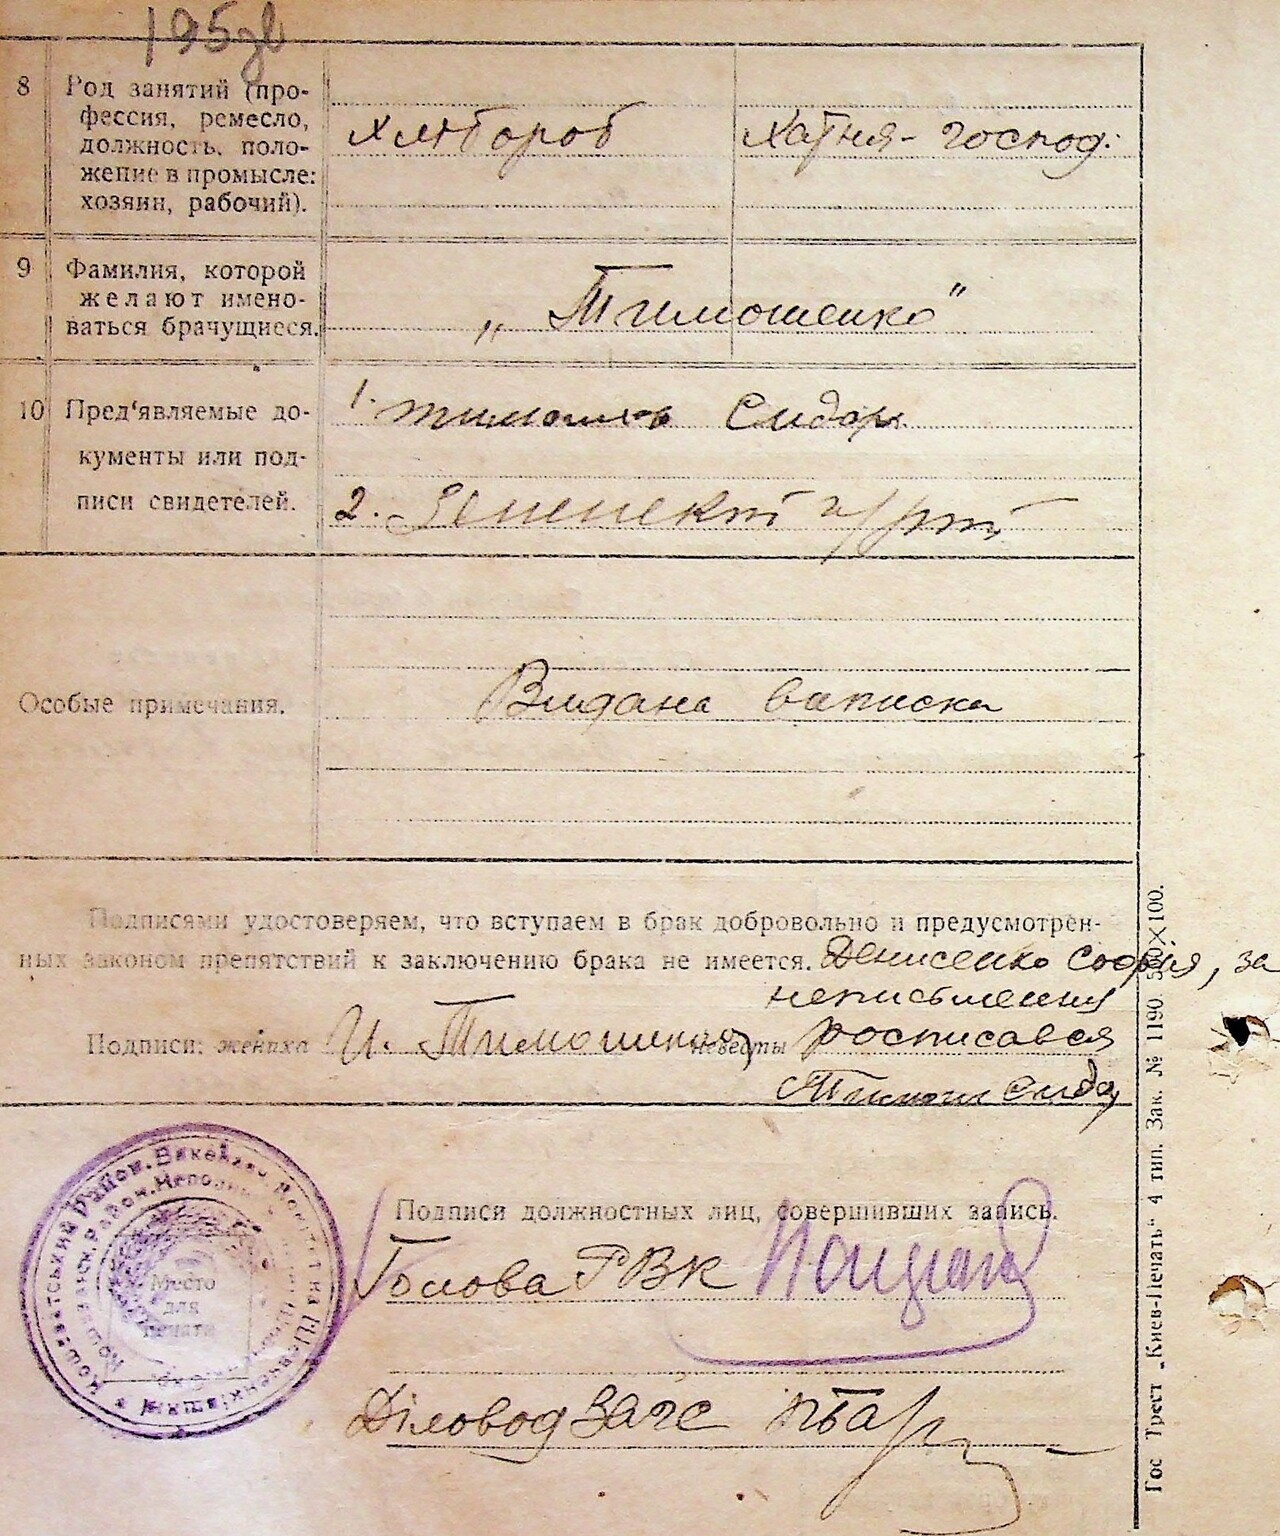 195зв
8 Род занятий (про-
фессия, ремесло,
должность, поло-
жение в промысле:
хозяин, рабочий).
хлібороб
Хатня-господ.
9 Фамилия, которой
желают имено-
ваться брачущиеся.
„Тимошенко"
10 Пред'являемые до-
кументы или под-
писи свидетелей.
1. Сидор
2.
Особые примечания.
Видана виписка
Подписями удостоверяем, что вступаем в брак добровольно и предусмотрен-
ных законом препятствий к заключению брака не имеется. Денисенко Софія, за
неписьменну
Подписи: жениха И. невесты росписався
Сидор
Подписи должностных лиц, совершивших запись.
Голова РВК
Діловод Загс
Место
для
печати
Гос Трест „Киев-Печать" 4 тип. Зак. № 1190 500×100.